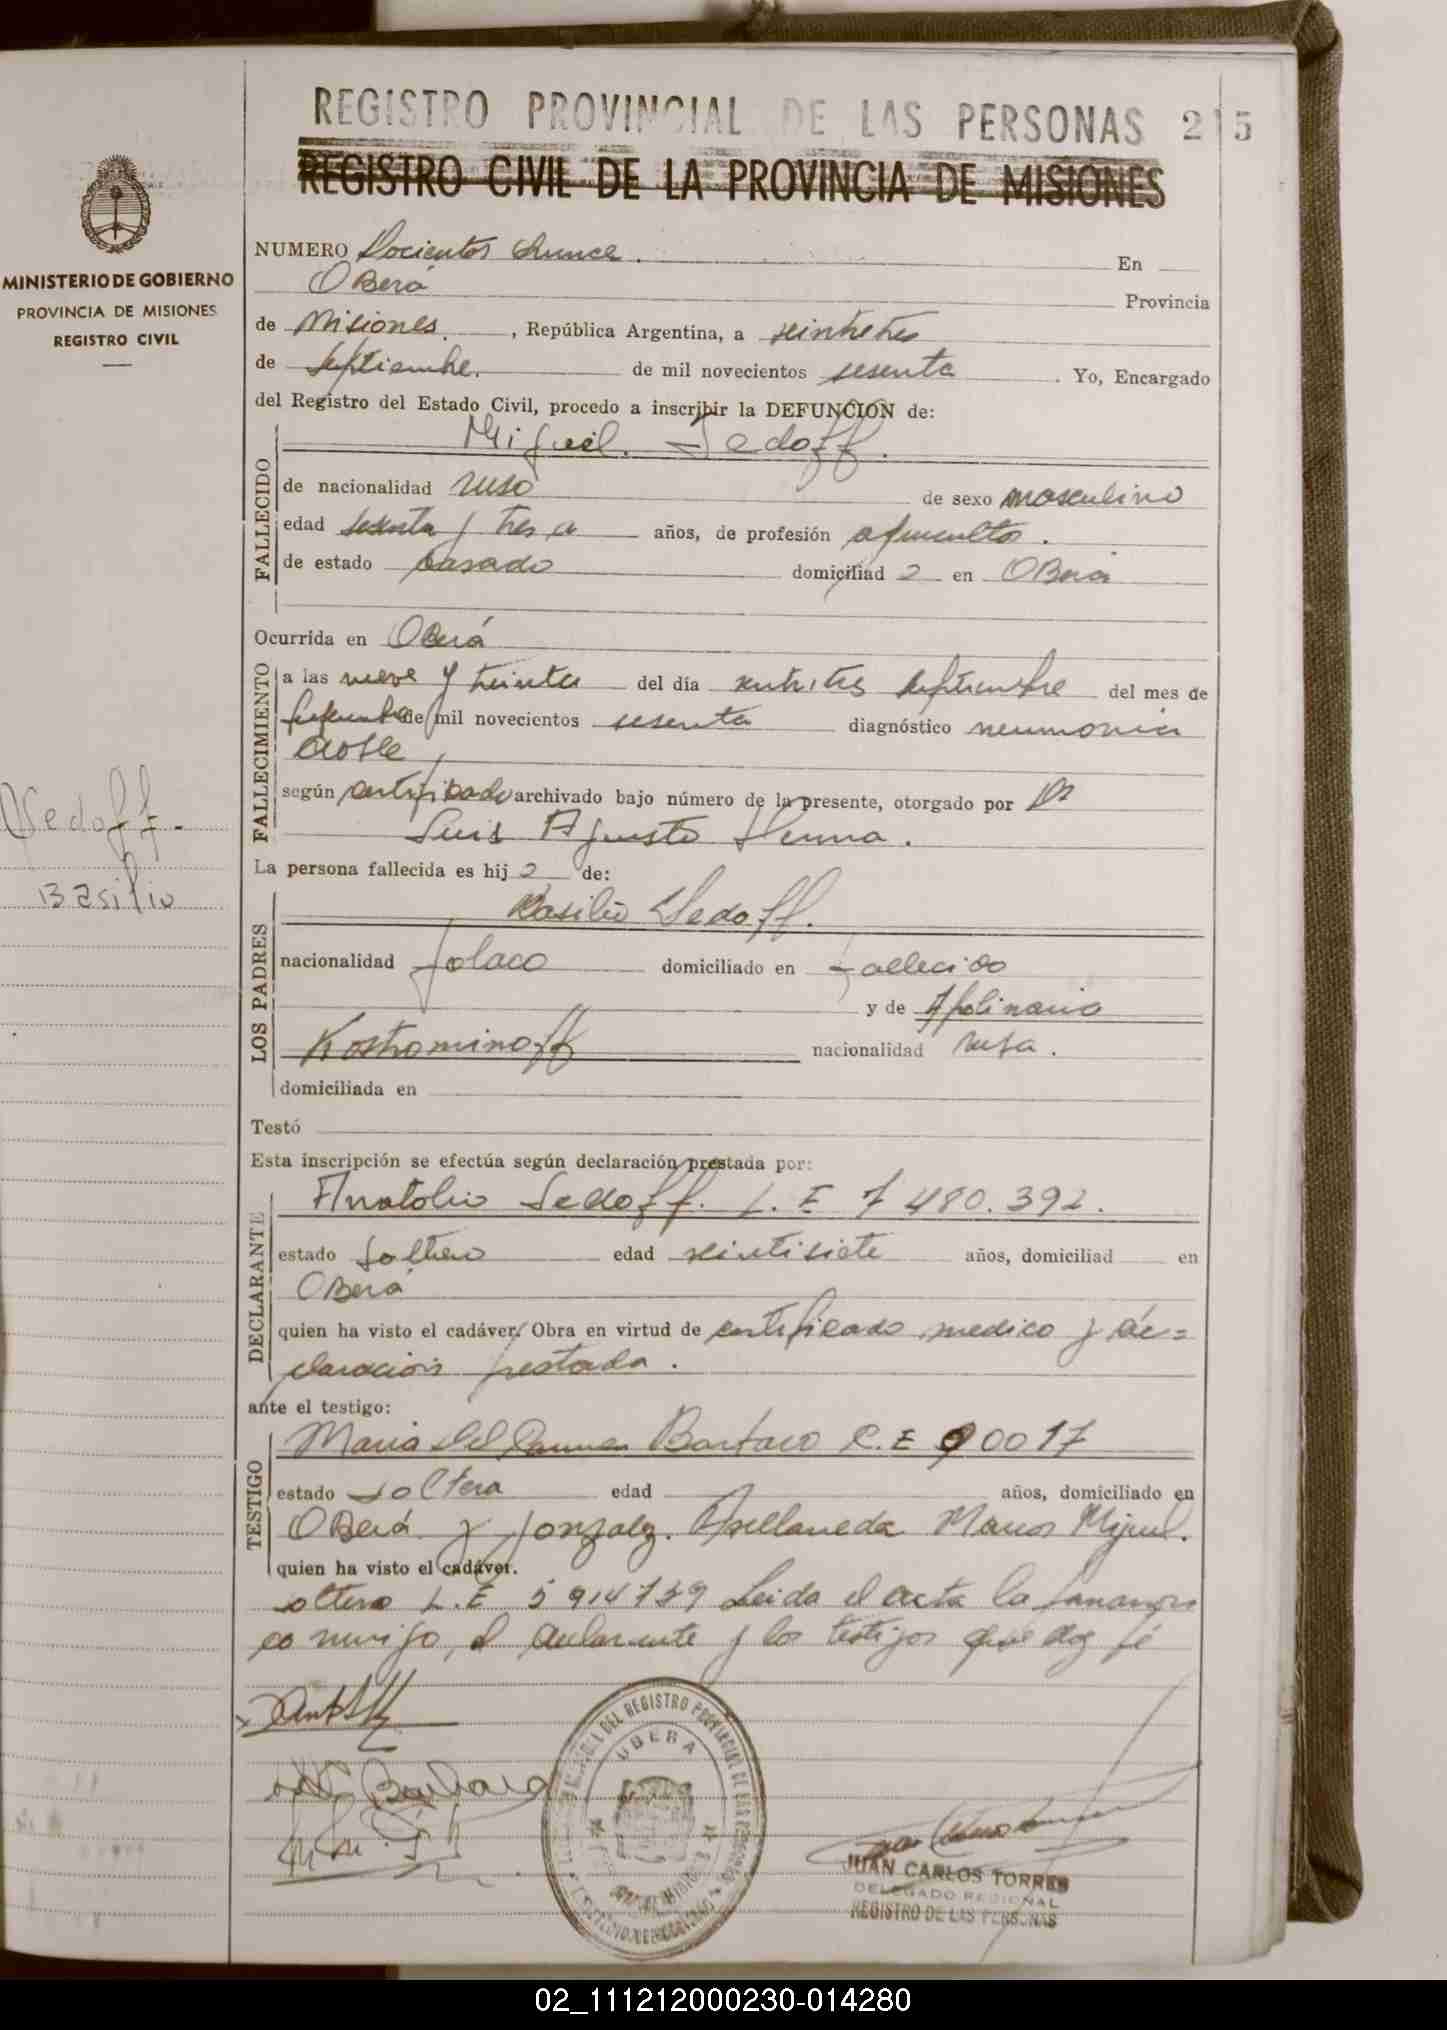 REGISTRO PROVINCIAL DE LAS PERSONAS 215
REGISTRO CIVIL DE LA PROVINCIA DE MISIONES
MINISTERIO DE GOBIERNO
PROVINCIA DE MISIONES
REGISTRO CIVIL
NUMERO Docientos Quince. En
Oberá Provincia
de Misiones, República Argentina, a veintitres
de Septiembre. de mil novecientos sesenta. Yo, Encargado
del Registro del Estado Civil, procedo a inscribir la DEFUNCION de:
Miguel. Sedoff.
FALLECIDO
de nacionalidad ruso de sexo masculino
edad sesenta y tres a años, de profesión agricultor.
de estado casado domiciliad o en Oberá
Ocurrida en Oberá
FALLECIMIENTO
a las nueve y treinta del día veintitres septiembre del mes de
de mil novecientos sesenta diagnóstico neumonia
doble,
según certificado archivado bajo número de la presente, otorgado por Dr
Luis Agusto
Sedoff.
Basilio
La persona fallecida es hij o de:
LOS PADRES
Basilio Sedoff.
nacionalidad Polaco domiciliado en fallecido
y de Apolinaria
Kostrominoff nacionalidad rusa.
domiciliada en
Testó
Esta inscripción se efectúa según declaración prestada por:
DECLARANTE
Anatolio Sedoff. L. E 7 480.392.
estado soltero edad veintisiete años, domiciliad en
Oberá
quien ha visto el cadáver/ Obra en virtud de certificado medico y de=
claración prestada.
ante el testigo:
TESTIGO
Maria del Carmen C.E 90017
estado soltera edad años, domiciliado en
Oberá y Gonzalez. Avellaneda Marcos Miguel.
quien ha visto el cadáver.
soltero L.E 5 914739 Leida el acta la firmaron
conmigo, el declarante y los testigos que doy fé
OBERA
JUAN CARLOS TORRES
DELEGADO REGIONAL
REGISTRO DE LAS PERSONAS
02_111212000230-014280